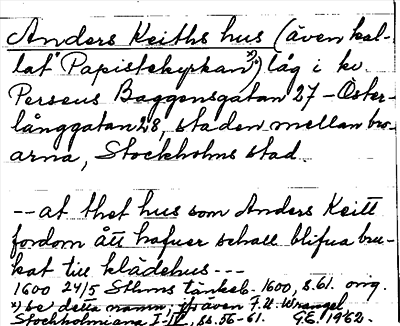 Anders Keiths hus (även kal-
lat "Papistekyrkan"x)) låg i kv.
Perseus Baggensgatan 27 – Öster-
långgatan 28, staden mellan bro-
arna, Stockholms stad.
-- at thet hus som Anders Keitt
fordom ått hafuer schall blifua bru-
kat till klädehus ---
1600 24/5 Sthms tänkeb. 1600, s. 61. orig.
x) se detta namn; jfr även F.U. Wrangel
Stockholmiana I-IV, ss. 56-61. G.E. 1962.